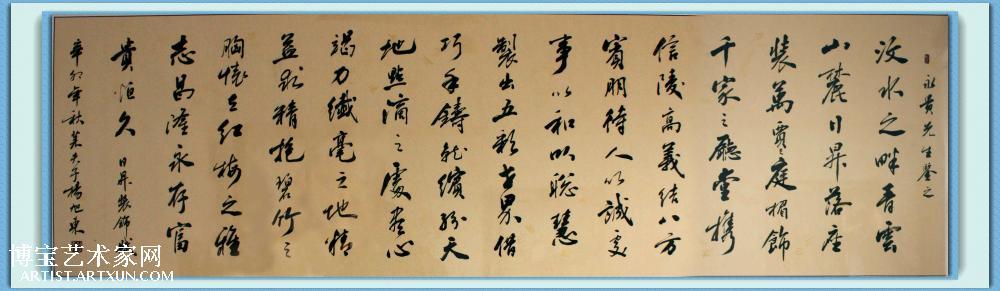 永贵先生鉴之
汶水之畔青雲
山麓日昇落座
装萬賈之庭楣飾
千家之廳堂携
信陵高義結八方
賓朋待人以誠処
事以和以聡慧
製出五彩世界借
巧手鑄就繽紛天
地点滴之處尽心
竭力纖毫之地情
益彰精抱碧竹之
胸懐立红梅之雅
志昌隆永存富
貴恒久 日昇装飾
辛卯年秋 楊旭東
博宝艺术家网
ARTIST.ARTXUN.COM